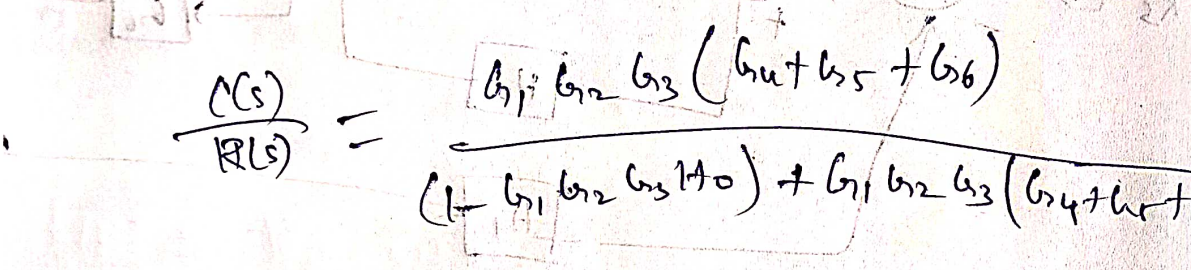 C(s)/R(s) = G1 G2 G3 (G4 + G5 + G6)
(1 - G1 G2 G3 H0) + G1 G2 G3 (G4 + G5 +